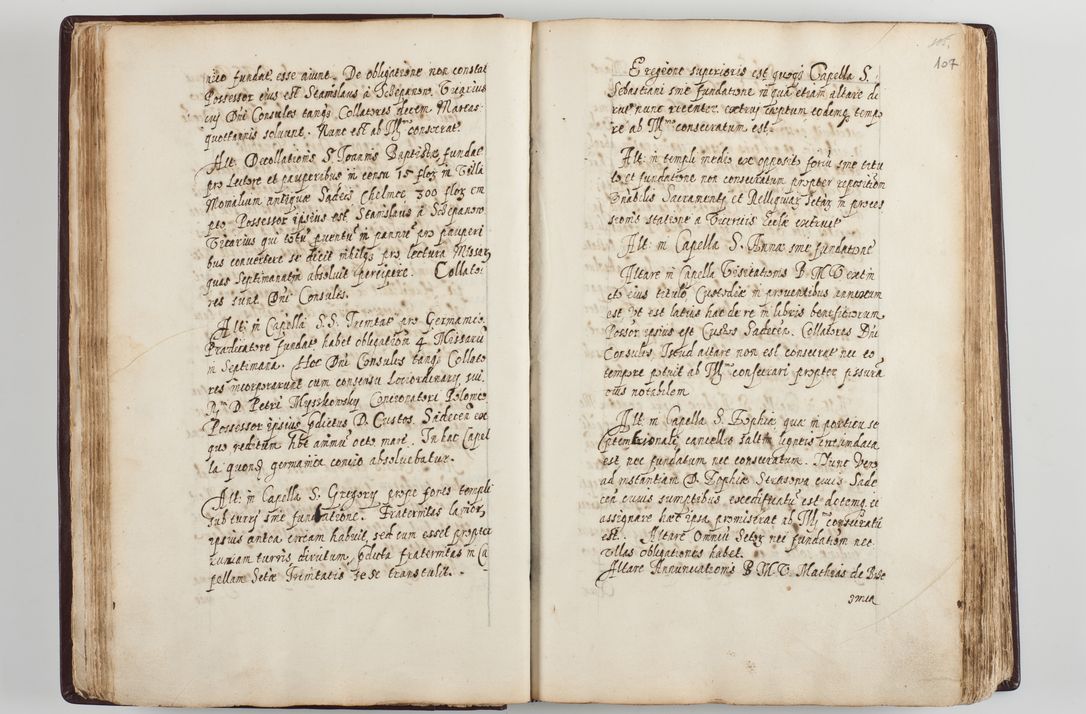 nico fundat. esse aiunt. De obligatione non constat
Possessor eius est Stanislaus à Sczepanow. Vicarius
cuj Dni Consules tanq3 Collatores decem Marcas
quottannis soluunt. Nunc est ab Illmo consecrat.
Alt. Decollationis S. Joannis Baptistæ fundat
pro Lectore et pauperibus in censu 15 flor in Villa
Monialium antiquæ Sadecz Chelmec 300 flor em
pto. Possessor ipsius est Stanislaus à Sczepanow
Vicarius qui totu puentu in pannu pro pauperi
bus convertere se dicit nihilq3 pro lectura Missar
quas Septimanatim absoluit percipere. Collato:
res sunt Dni Consules.
Alt: in Capella S.S. Trinitat. pro Germanico
Prædicatore fundat. habet obligation 4 Missaru
in Septimana. Hoc Dni Consules tanq3 Collato
res incorporarunt cum consensu Loci ordinarij sui
D. Petri Myszkowsky Concionatori Polonico
Possessor ipsius pdictus D. Custos Sadecen ex
quo reditum hbt annuu octo marc. In hac Capel
la quonda germanica concio absoluebatur.
Alt: in Capella S. Gregorij prope fores templi
sub turrj sine fundatione. Fraternitas
ipsius antea curam habuit, sed cum esset propter
ruinam turris dirutum, pdicta fraternitas in Ca
pellam Sctæ Trinitatis se se transtulit.
107
E regione superioris est quoq3 Capella S.
Sebastiani sine fundatione in qua etiam altare di
rut nunc recenter extructum eodemq3 tempo
re ab Illmo consecratum est.
Alt: in templi medio ex opposito foriu sine titu
lo et fundatione non consecratum propter repositiom
Vnabilis Sacramenti et Relliquiar Sctar in proces
sionis statione a Turriis Eclæ extruit
Alt: in Capella S. Annæ sine fundatione
Altare in Capella Visitationis B.M.V. extin
cto eius titulo Custodiæ in proventibus annexum
est vt est latius hac de re in libris beneficiorum
Possor ipsius est Custos Sadecen. Collatores Dni
Consules. Istud altare non est consecrat nec eo
tempore potuit ab Illmo consecrari propter fissura
eius notabilem
Alt: in Capella S. Sophiæ quæ in porticu se
ptemtrionali cancellis saltim ligneis circumdata
est nec fundatum nec consecratum. Nunc vero
ad instantiam D. Sophiæ ciuis Sade
cen cuius sumptibus exædificatu est dotemq3 ei
assignare hæc ipsa promiserat ab Illmo consecratu
est. Altare Omniu Sctor nec fundatiom nec
vllas obligationes habet.
Altare Annunciationis B.M.V. Mathias de Brze
zinea